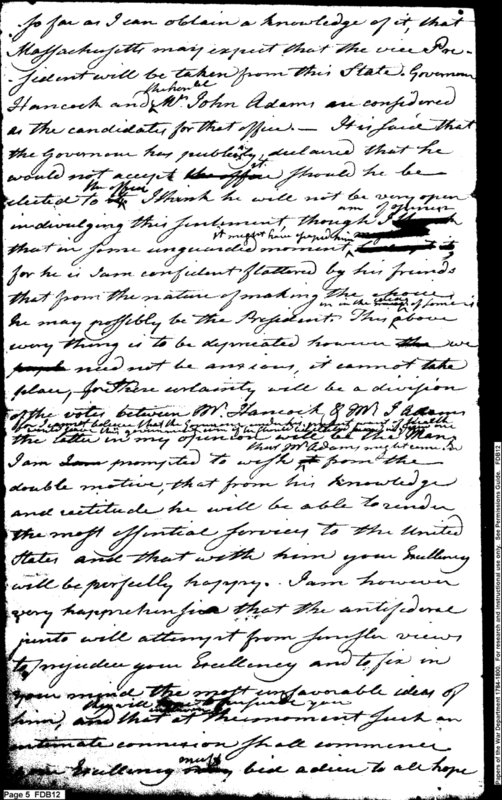 so far as I can obtain a knowledge of it, that
Massachusetts may expect that the vice Pre-
sident will be taken from this State. Governour
Hancock and the honble Mr John Adams are considered
as the candidates for that office. — It is said that
the Governour has publicly declared that he
would not accept it should he be
elected to the office I think he will not be very open
in divulging this sentiment, though I am of opinion
that in some unguarded moment it might have escaped him
for he is I am confident flattered by his friends
that from the nature of making the choice
he may possibly be the President. This above
every thing is to be deprecated however we
need not be anxious, it cannot take
place, for there certainly will be a division
of the votes between Mr. Hancock & Mr J Adams
the latter in my opinion will be the Man,
I am prompted to wish that Mr Adams might from the
double motive, that from his knowledge
and rectitude he will be able to render
the most essential services to the United
States and that with him your Excellency
will be perfectly happy. I am however
very happrehensive that the antifederal
junto will attempt from sinister views
to prejudice your Excellency and to fix in
your mind the most unfavorable ideas of
him, they will persuade you and that at the moment such an
intimate connexion shall commence
your Excellency must bid adieu to all hope
Page 5 FDB12
Papers of the War Department 1784-1800. For research and instructional use only. See Permissions Guide. FDB12